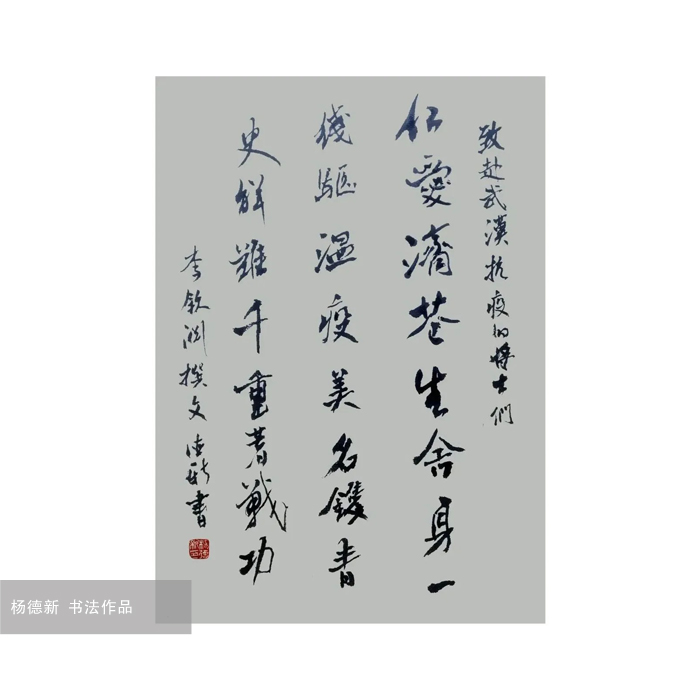 致赴武漢抗疫的將士們
仁愛濟苍生舍身一
綫驅温疫美名鏤青
史解難千重著戰功
李欽渊撰文 德新書
杨德新 书法作品